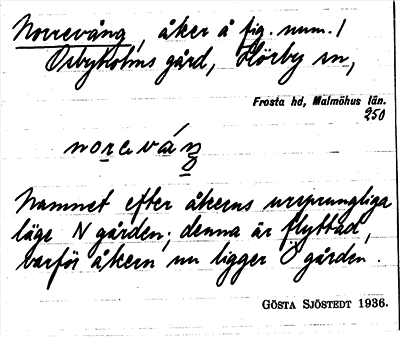 Norrevång, åker å fig. num. 1
Osbyholms gård, Hörby sn,
Frosta hd, Malmöhus län.
250
noreváŋ
Namnet efter åkerns ursprungliga
läge N gården; denna är flyttad,
varför åkern nu ligger Ö gården.
GÖSTA SJÖSTEDT 1936.